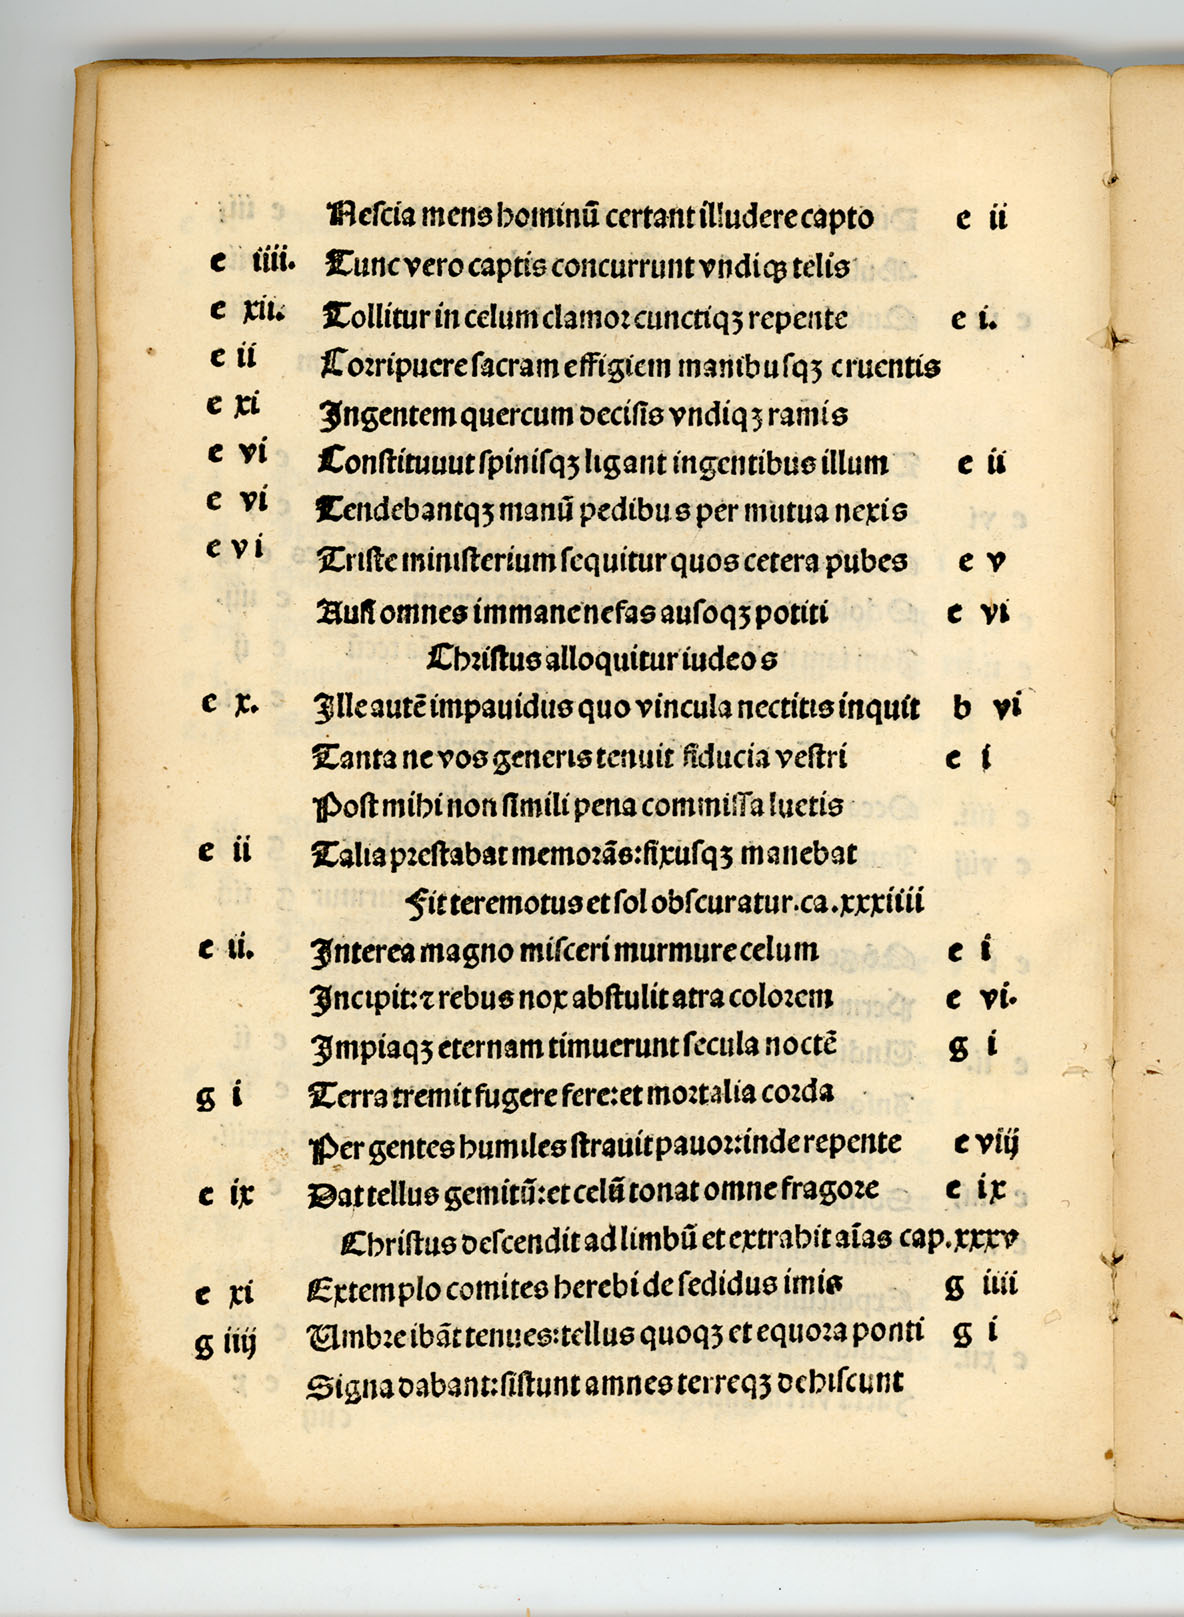 Neſcia mens hominū certant illudere capto e ii
e iiii. Tunc vero captis concurrunt vndiqꝫ telis
e xii. Tollitur in celum clamoꝛ cunctiqꝫ repente e i.
e ii Coꝛripuere ſacram effigiem manibuſqꝫ cruentis
e xi Ingentem quercum deciſis vndiqꝫ ramis
e vi Conſtituuut ſpiniſqꝫ ligant ingentibus illum e ii
e vi Tendebantqꝫ manū pedibus per mutua nexis
e vi Triſte miniſterium ſequitur quos cetera pubes e v
Auſi omnes immane nefas auſoqꝫ potiti e vi
Chriſtus alloquitur iudeos
e x. Ille autē impauidus quo vincula nectitis inquit b vi
Tanta ne vos generis tenuit fiducia veſtri e i
Poſt mihi non ſimili pena commiſſa luetis
e ii Talia pꝛeſtabat memoꝛās:fixuſqꝫ manebat
Fit teremotus et ſol obſcuratur.ca.xxxiiii
e ii. Interea magno miſceri murmure celum e i
Incipit:⁊ rebus nox abſtulit atra coloꝛem e vi.
Impiaqꝫ eternam timuerunt ſecula noctē g i
g i Terra tremit fugere fere:et moꝛtalia coꝛda
Per gentes humiles ſtrauit pauoꝛ:inde repente e viij
e ix Dat tellus gemitū:et celū tonat omne fragoꝛe e ix
Chriſtus deſcendit ad limbū et extrahit aīas cap.xxxv
e xi Extemplo comites herebi de ſedidus imis g iiii
g iiij Umbꝛe ibāt tenues:tellus quoqꝫ et equoꝛa ponti g i
Signa dabant:ſiſtunt amnes terreqꝫ dehiſcunt